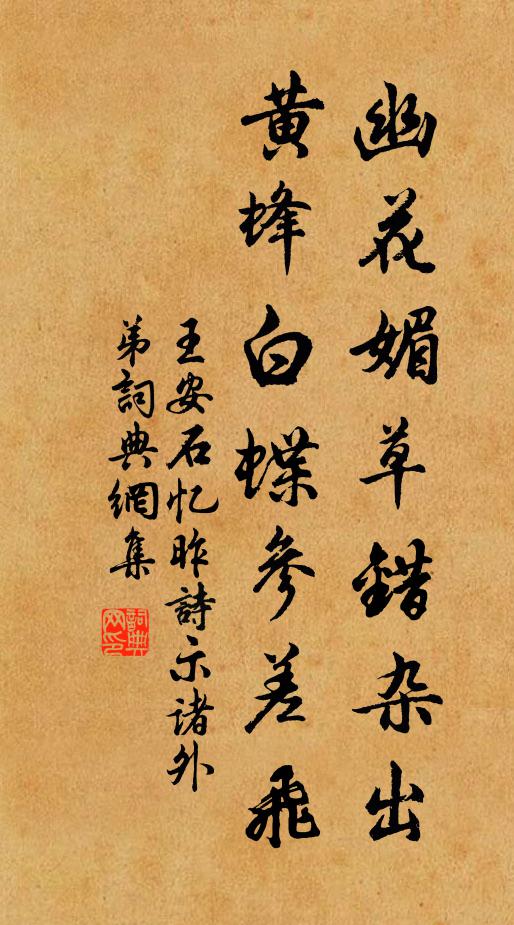 幽花媚草錯杂出
黄蜂白蝶參差飛
王安石忆昨詩示诸外
弟詞典網集
詞典網印